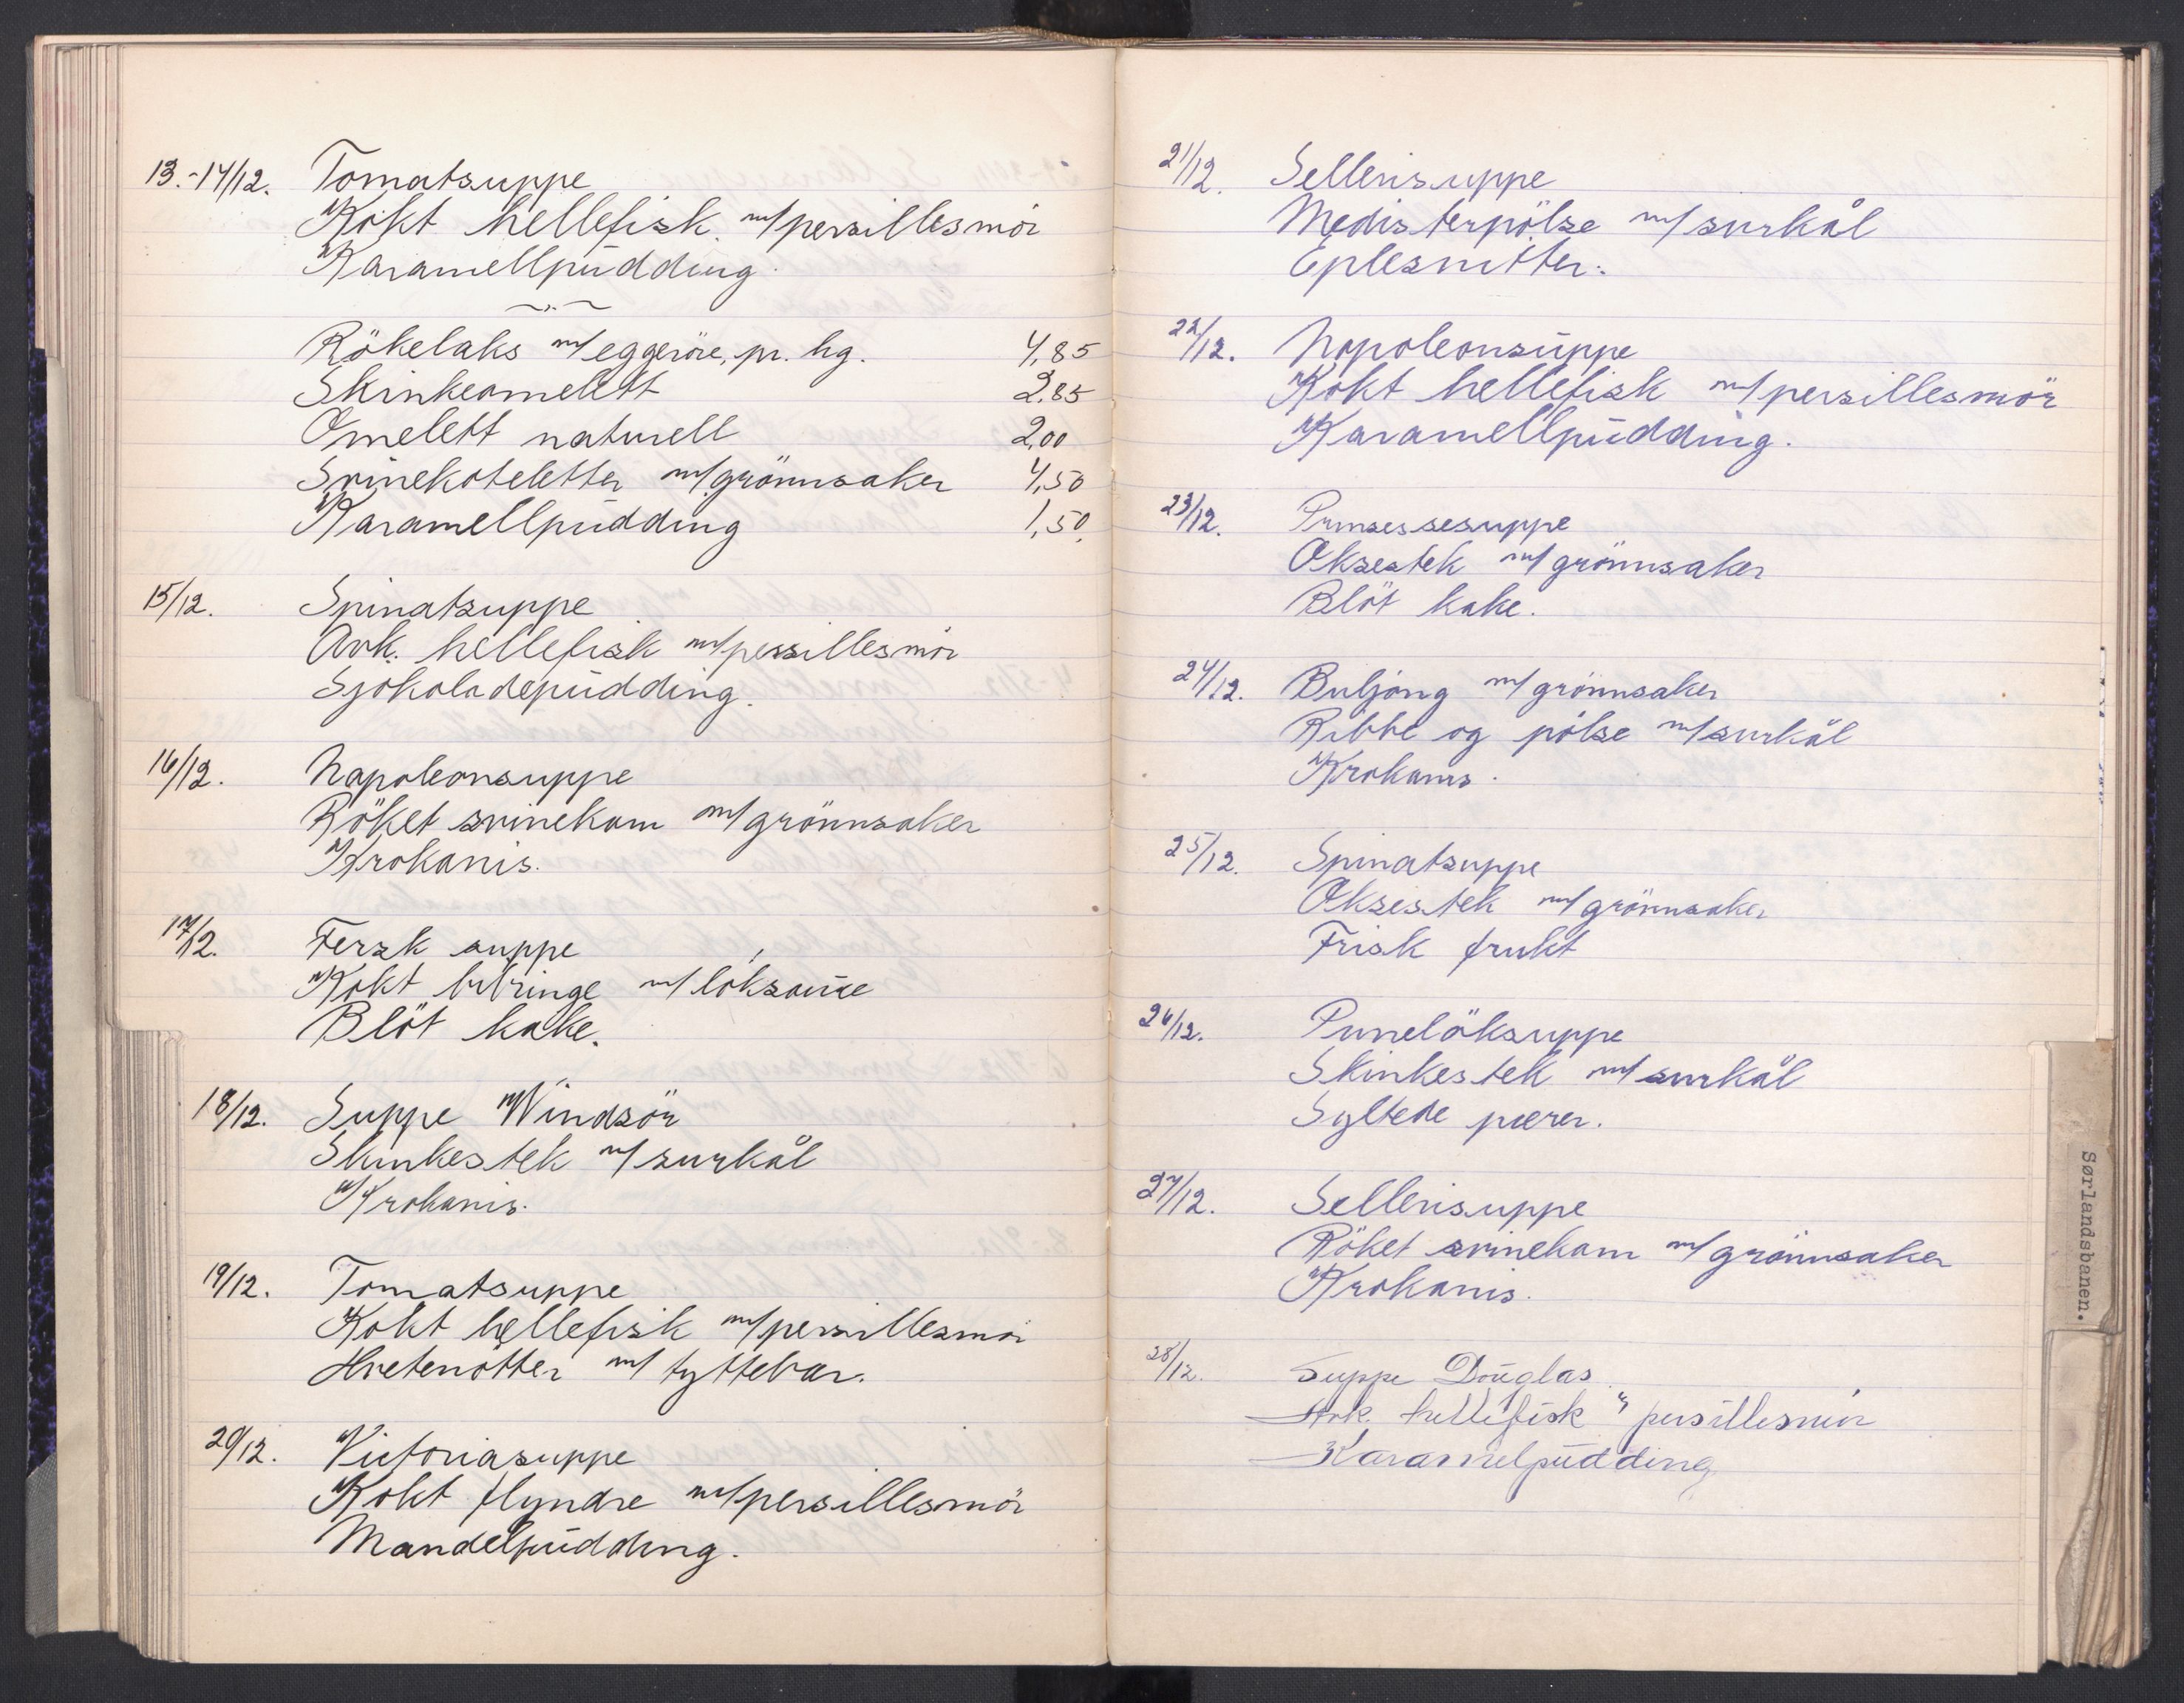 13.-14/12. Tomatsuppe
Kokt hellefisk m/persillesmör
Karamellpudding.
Rökelaks m/eggeröre, pr. hg. 4,85
Skinkeomelett 2.85
Omelett naturell 2,00
Svinekoteletter m/grönnsaker 4,50
Karamellpudding 1,50.
15/12. Spinatsuppe
Avk. hellefisk m/persillesmör
Sjokoladepudding.
16/12. Napoleonsuppe
Röket svinekam m/grönnsaker
Krokanis.
17/12. Fersk suppe
Kokt bibringe m/löksause
Blöt kake.
18/12. Suppe Windsor
Skinkestek m/surkål
Krokanis.
19/12. Tomatsuppe
Kokt hellefisk m/persillesmör
Hvetenötter m/tyttebær.
20/12. Victoriasuppe
Kokt flyndre m/persillesmör
Mandelpudding.
21/12. Sellerisuppe
Medisterpölse m/surkål
Eplesnitter.
22/12. Napoleonsuppe
Kokt hellefisk m/persillesmör
Karamellpudding.
23/12. Prinsessesuppe
Oksestek m/grönnsaker
Blöt kake.
24/12. Buljong m/grönnsaker
Ribbe og pölse m/surkål
Krokanis.
25/12. Spinatsuppe
Oksestek m/grönnsaker
Frisk frukt
26/12. Purrelöksuppe
Skinkestek m/surkål
Syltede pærer.
27/12. Sellerisuppe
Röket svinekam m/grönnsaker
Krokanis.
28/12. Suppe Douglas
Avk. hellefisk " persillesmör
Karamelpudding
Sørlandsbanen.